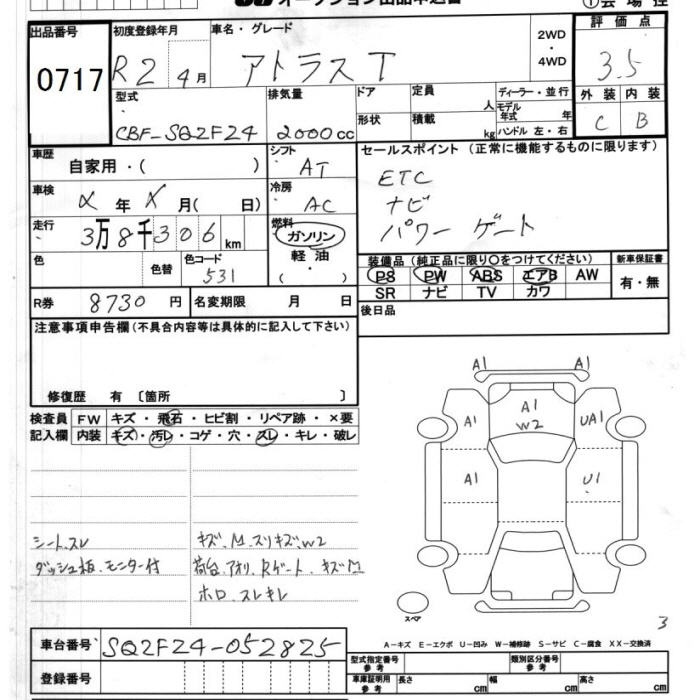 オークション出品申込書
①会場控
出品番号 初度登録年月 車名・グレード 2WD ・ 4WD 評価点
0717 R2 4月 アトラス T 3.5
型式 排気量 ドア 定員 人 ディーラー・並行 外装 内装
CBF-SQ2F24 2000cc 形状 積載 kg モデル年式 年 ハンドル 左・右 C B
車歴 自家用・( ) シフト AT セールスポイント (正常に機能するものに限ります)
ETC
ナビ
パワーゲート
車検 年 月( 日) 冷房 AC
走行 3万8千306km 燃料 ガソリン
軽油
( ・ )
色 色替 色コード 531
装備品 (純正品に限り〇をつけてください) 新車保証書
PS PW ABS エアB AW 有・無
SR ナビ TV カワ
R券 8730円 名変期限 月 日 後日品
注意事項申告欄(不具合内容等は具体的に記入して下さい)
修復歴 有 〔箇所 〕
検査員 FW キズ・飛石・ヒビ割・リペア跡・×要
記入欄 内装 キズ・汚レ・コゲ・穴・スレ・キレ・破レ
A1 A1
A1
W2
A1 UA1
A1 U1
シート.スレ キズ.M.スリキズW2
ダッシュ板.モニター付 荷台.アオリ.Rゲート.キズM
ホロ.スレキレ
スペア
3
A-キズ E-エクボ U-凹み W-補修跡 S-サビ C-腐食 XX-交換済
車台番号 SQ2F24-052825
型式指定番号 参考 類別区分番号 参考
登録番号 車庫証明用 参考 長さ cm 幅 cm 高さ cm